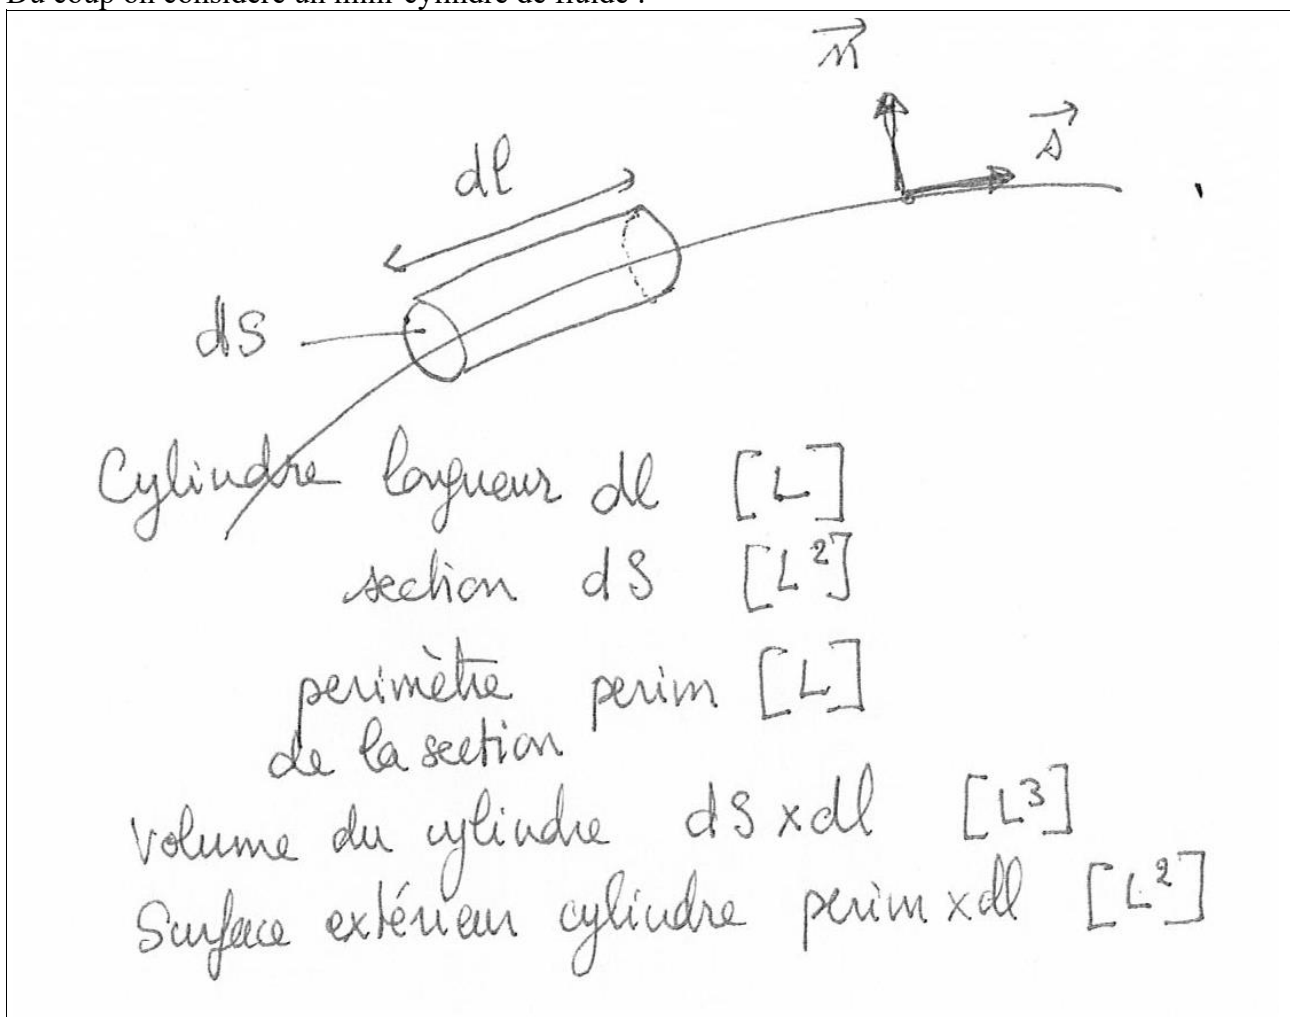 Du coup on considère un mini-cylindre de fluide :
n
s
dl
dS
Cylindre longueur dl [L]
section dS [L²]
perimètre perim [L]
de la section
Volume du cylindre dS x dl [L³]
Surface extérieur cylindre perim x dl [L²]